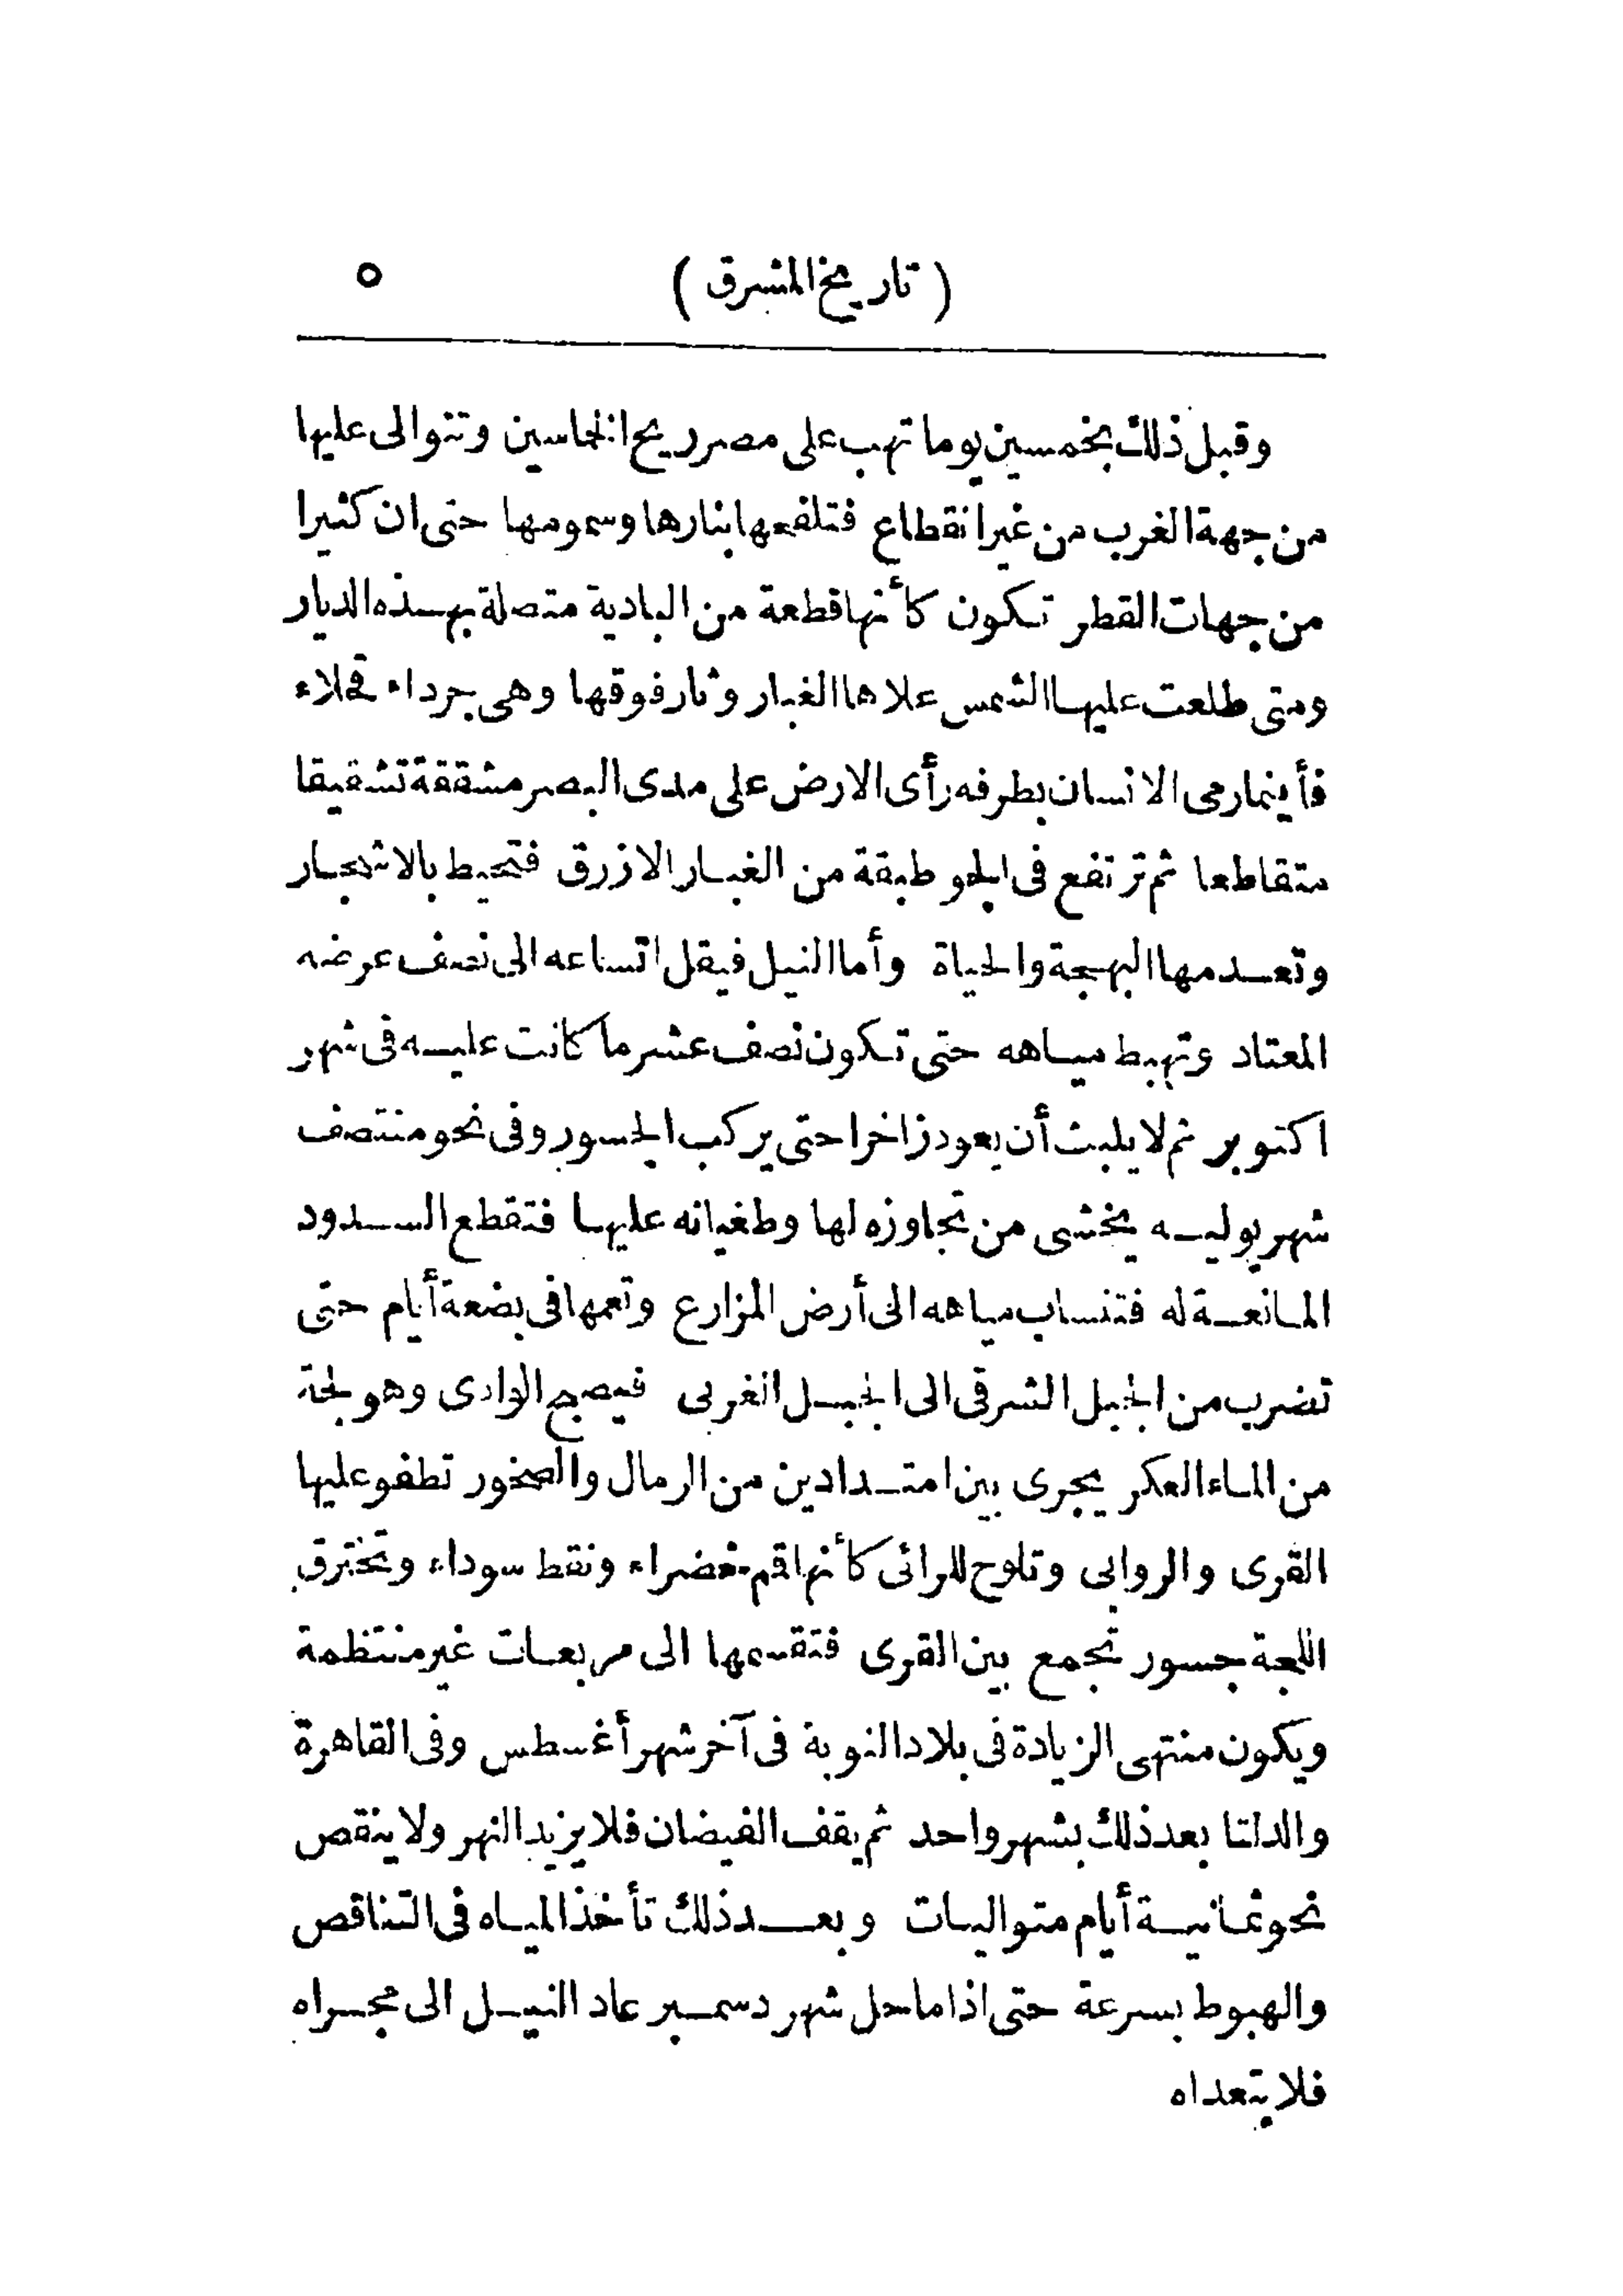 ( تاريخ المشرق ) ٥
وقبل ذلك بخمسين يوما تهب على مصر ريح الخماسين وتتوالى عليها
من جهة الغرب من غير انقطاع فتلفحها بنارها وسمومها حتى ان كثيرا
من جهات القطر تكون كأنها قطعة من البادية متصلة بهذه الديار
ومتى طلعت عليها الشمس علاها الغبار وثار فوقها وهى جرداء قحلاء
فأينما رمى الانسان بطرفه رأى الارض على مدى البصر مشققة تشقيقا
متقاطعا ثم ترتفع فى الجو طبقة من الغبار الازرق فتحيط بالاشجار
وتعدمها البهجة والحياة وأما النيل فيقل اتساعه الى نصف عرضه
المعتاد وتهبط مياهه حتى تكون نصف عشر ما كانت عليه فى شهر
اكتوبر ثم لا يلبث أن يعود زاخرا حتى يركب الجسور وفى نحو منتصف
شهر يوليه يخشى من تجاوزه لها وطغيانه عليها فتقطع السدود
المانعة له فتنساب مياهه الى أرض المزارع وتعمها فى بضعة أيام حتى
تضرب من الجبل الشرقى الى الجبل الغربى فيصبح الوادى وهو لجة
من الماء العكر يجرى بين امتدادين من الرمال والصخور تطفو عليها
القرى والروابى وتلوح للرائى كأنها قمم خضراء ونقط سوداء وتخترق
اللجة جسور تجمع بين القرى فتقسمها الى مربعات غير منتظمة
ويكون منتهى الزيادة فى بلاد النوبة فى آخر شهر أغسطس وفى القاهرة
والدلتا بعد ذلك بشهر واحد ثم يقف الفيضان فلا يزيد النهر ولا ينقص
نحو ثمانية أيام متواليات وبعد ذلك تأخذ المياه فى التناقص
والهبوط بسرعة حتى اذا ما حل شهر دسمبر عاد النيل الى مجراه
فلا يتعداه